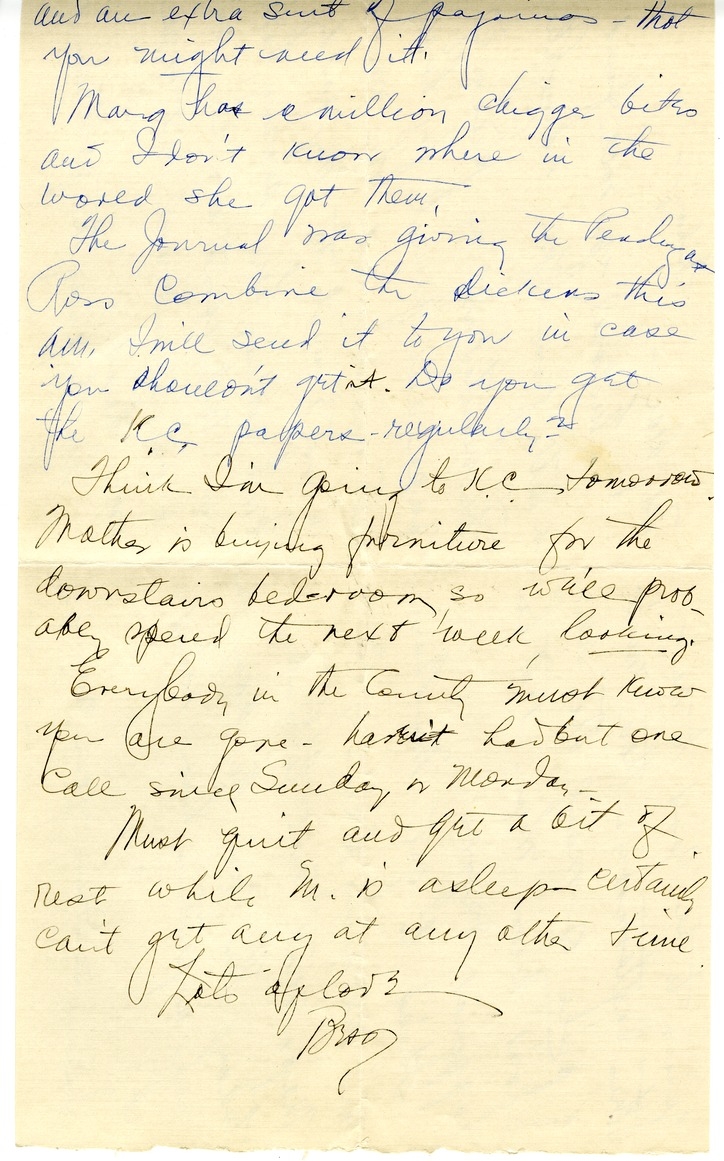 and an extra suit of pajamas - that
you might need it.
Marg has a million chigger bites
and I don't know where in the
world she got them.
The Journal was giving the Pendergast
Ross Combine the dickens this
am. I will send it to you in case
you shouldn't get it. Do you get
the K.C. papers - regularly -?
Think I'm going to K.C. tomorrow.
Mother is buying furniture for the
downstairs bed-room, so we'll prob-
ably spend the next week, looking.
Everybody in the County must know
you are gone - haven't had but one
call since Sunday or Monday -
Must quit and get a bit of
rest while M. is asleep - certainly
can't get any at any other time.
Lots o' love
Bess